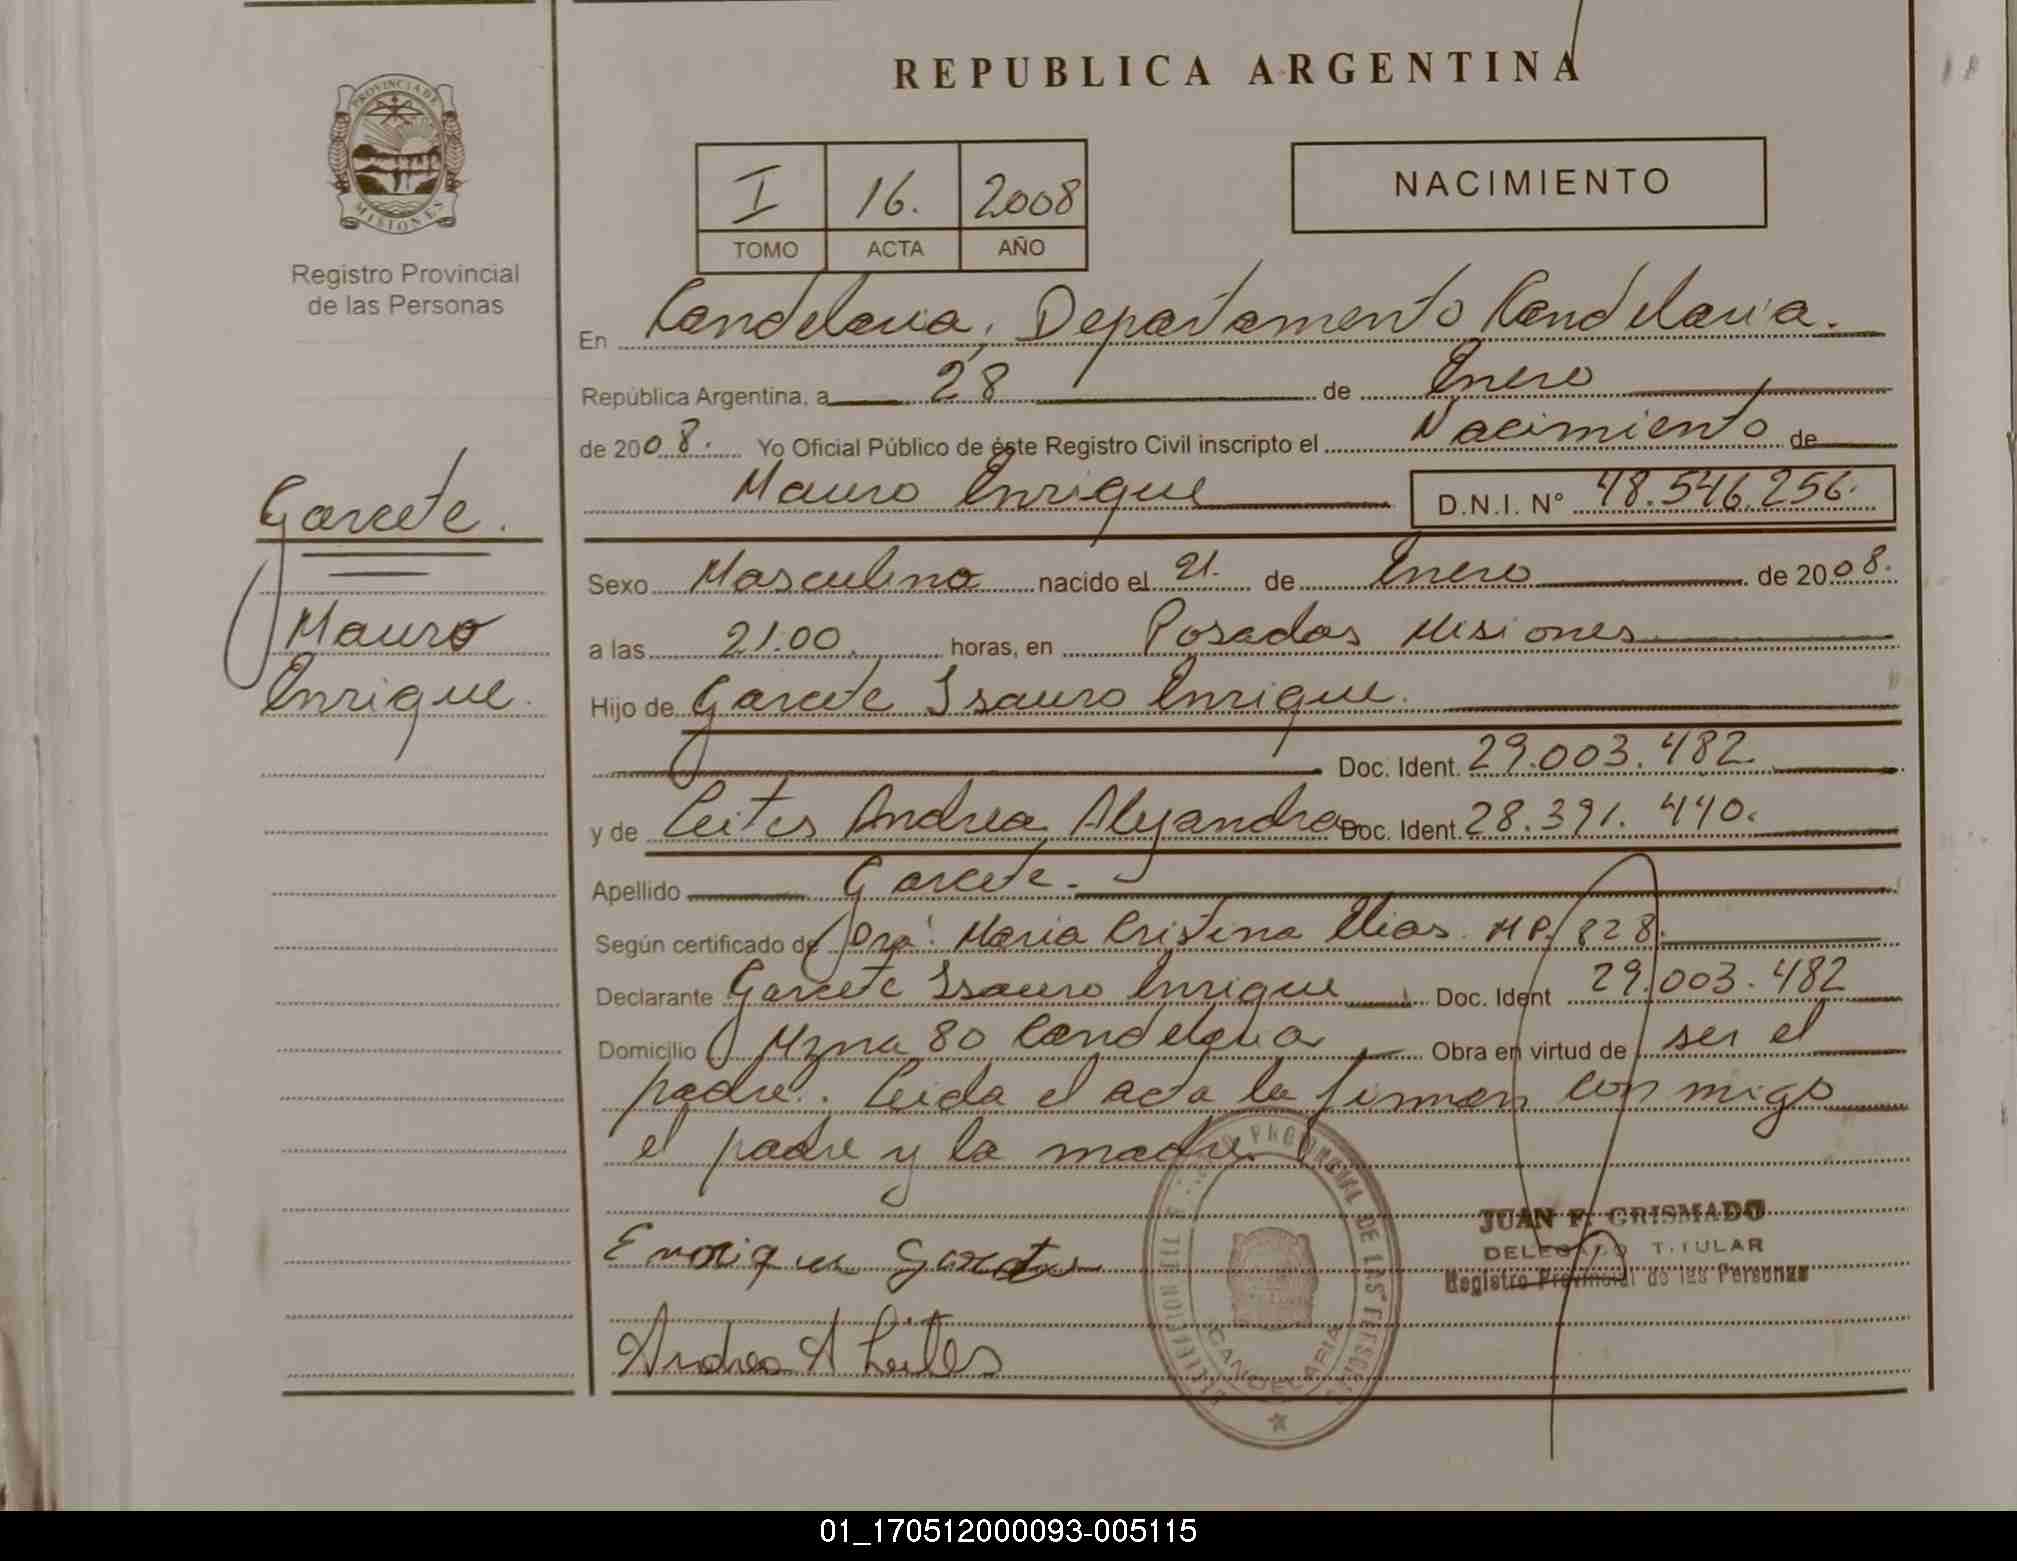 REPUBLICA ARGENTINA
PROVINCIA DE
MISIONES
Registro Provincial
de las Personas
I 16. 2008
TOMO ACTA AÑO
NACIMIENTO
En Candelaria, Departamento Candelaria.
República Argentina, a 28 de Enero
de 2008. Yo Oficial Público de éste Registro Civil inscripto el Nacimiento de
Mauro Enrique D.N.I. N° 48.546.256.
Garcete.
Mauro
Enrique.
Sexo Masculino nacido el 21. de Enero de 2008.
a las 21.00. horas, en Posadas Misiones
Hijo de Garcete Isauro Enrique.
Doc. Ident. 29.003.482.
y de Leites Andrea Alejandra Doc. Ident. 28.391.440.
Apellido Garcete.
Según certificado de Dra. Maria Cristina Elias. MP. 828.
Declarante Garcete Isauro Enrique Doc. Ident 29.003.482
Domicilio Mzna 80 Candelaria Obra en virtud de ser el
padre. Leida el acta la firman conmigo
el padre y la madre.
Enrique Garcete
Andrea A Leites
PROVINCIAL DE LAS PERSONAS
CANDELARIA
JUAN F. GRISMADO
DELEGADO TITULAR
Registro Provincial de las Personas
01_170512000093-005115